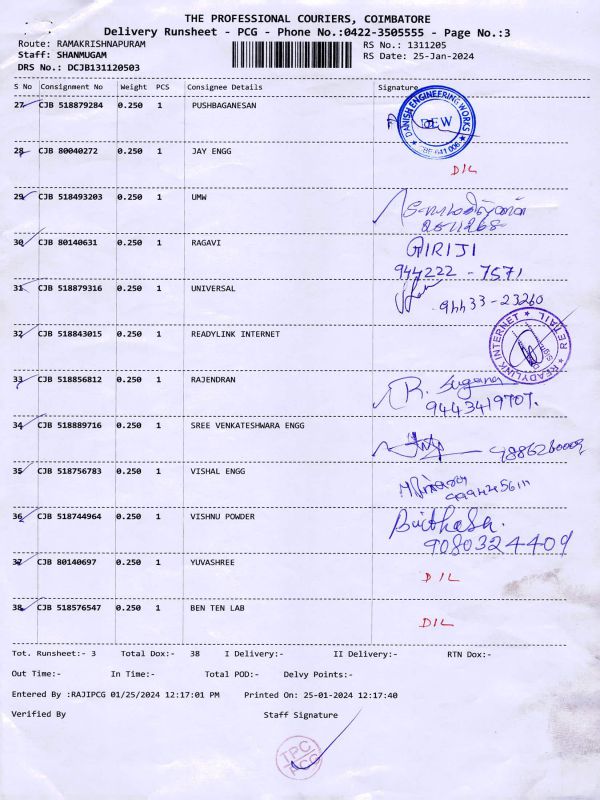 THE PROFESSIONAL COURIERS, COIMBATORE
Delivery Runsheet - PCG - Phone No.:0422-3505555 - Page No.:3
Route: RAMAKRISHNAPURAM
RS No.: 1311205
Staff: SHANMUGAM
RS Date: 25-Jan-2024
DRS No.: DCJB131120503
S No Consignment No Weight PCS Consignee Details Signature
27 CJB 518879284 0.250 1 PUSHBAGANESAN
DANISH ENGINEERING WORKS
DEW
CBE 641 006
28 CJB 80040272 0.250 1 JAY ENGG D/L
29 CJB 518493203 0.250 1 UMW
30 CJB 80140631 0.250 1 RAGAVI GIRIJI
944222 - 7571
31 CJB 518879316 0.250 1 UNIVERSAL 94433-23260
32 CJB 518843015 0.250 1 READYLINK INTERNET
READYLINK INTERNET
RETAIL
33 CJB 518856812 0.250 1 RAJENDRAN R. Sugana
9443419707.
34 CJB 518889716 0.250 1 SREE VENKATESHWARA ENGG
35 CJB 518756783 0.250 1 VISHAL ENGG
36 CJB 518744964 0.250 1 VISHNU POWDER
9080324409
37 CJB 80140697 0.250 1 YUVASHREE D/L
38 CJB 518576547 0.250 1 BEN TEN LAB D/L
Tot. Runsheet:- 3 Total Dox:- 38 I Delivery:- II Delivery:- RTN Dox:-
Out Time:- In Time:- Total POD:- Delvy Points:-
Entered By :RAJIPCG 01/25/2024 12:17:01 PM Printed On: 25-01-2024 12:17:40
Verified By Staff Signature
TPC
PCG